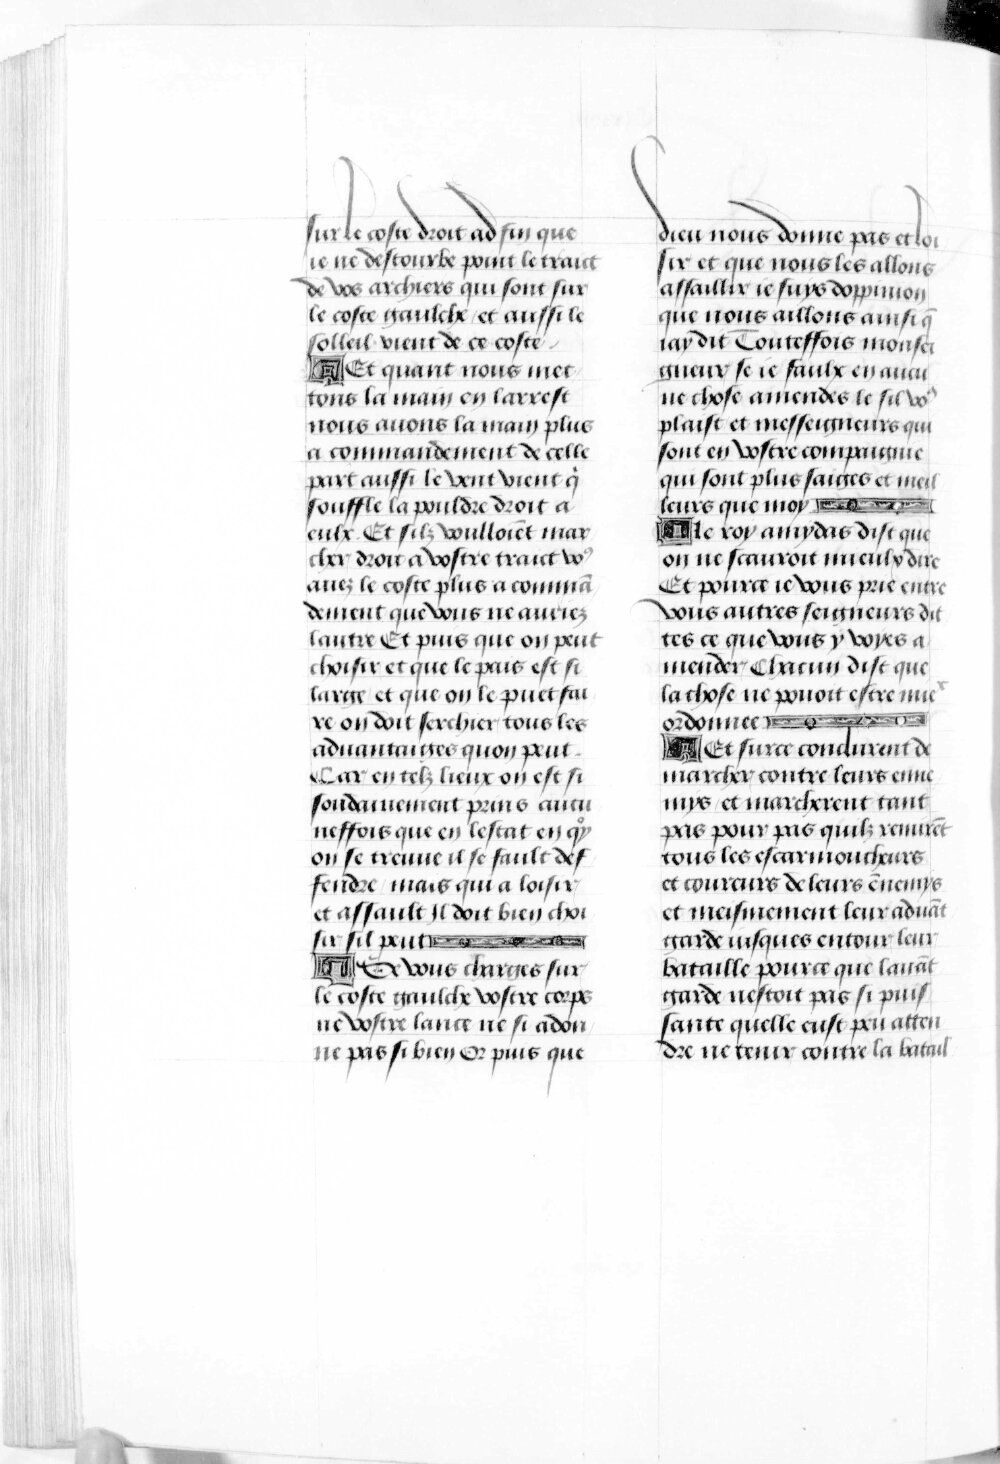 sur le coste droit ad fin que
ie ne destourbe point le traict
de vos archiers qui sont sur
le coste gaulche / et aussi le
solleil vient de ce coste /
Et quant nous met
tons la main en larrest
nous auons la main plus
a commandement de celle
part aussi le vent vient q̇
souffle la pouldre droit a
eulx . Et silz voulloiēt mar
cher droit a vostre traict voꝰ
auez le coste plus a commā
dement que vous ne auriez
lautre Et puis que on peut
choisir et que le pais est si
large / et que on le puet fai
re on doit serchier tous les
aduantaiges quon peut .
Car en telz lieux on est si
soudainement prins aucu
neffois que en lestat en qͦy
on se treuue il se fault def
fendre / mais qui a loisir
et assault Il doit bien choi
sir sil peut
Se vous charges sur
le coste gaulche vostre corps
ne vostre lance ne si adon
ne pas si bien Or puis que
dieu nous donne pas et loi
sir et que nous les allons
assaillir ie suys doppinion
que nous aillons ainsi q̄
iay dit Touteffois monsei
gneur se ie faulx en aucu
ne chose amendes le sil voꝰ
plaist et messeigneurs qui
sont en vostre compaignie
qui sont plus saiges et meil
leurs que moy
le roy amydas dist que
on ne scauroit mieulx dire
Et pource ie vous prie entre
vous autres seigneurs dit
tes ce que vous y voyes a
mender Chacun dist que
la chose ne pouoit estre mieͯ
ordonnee
Et sur ce conclurent de
marcher contre leurs enne
mys / et marcherent tant
pas pour pas quilz remirēt
tous les escarmoucheurs
et coureurs de leurs ēnemys
et meismement leur aduāt
garde iusques entour leur
bataille pource que lauāt
garde nestoit pas si puis
sante quelle eust peu atten
dre ne tenir contre la batail